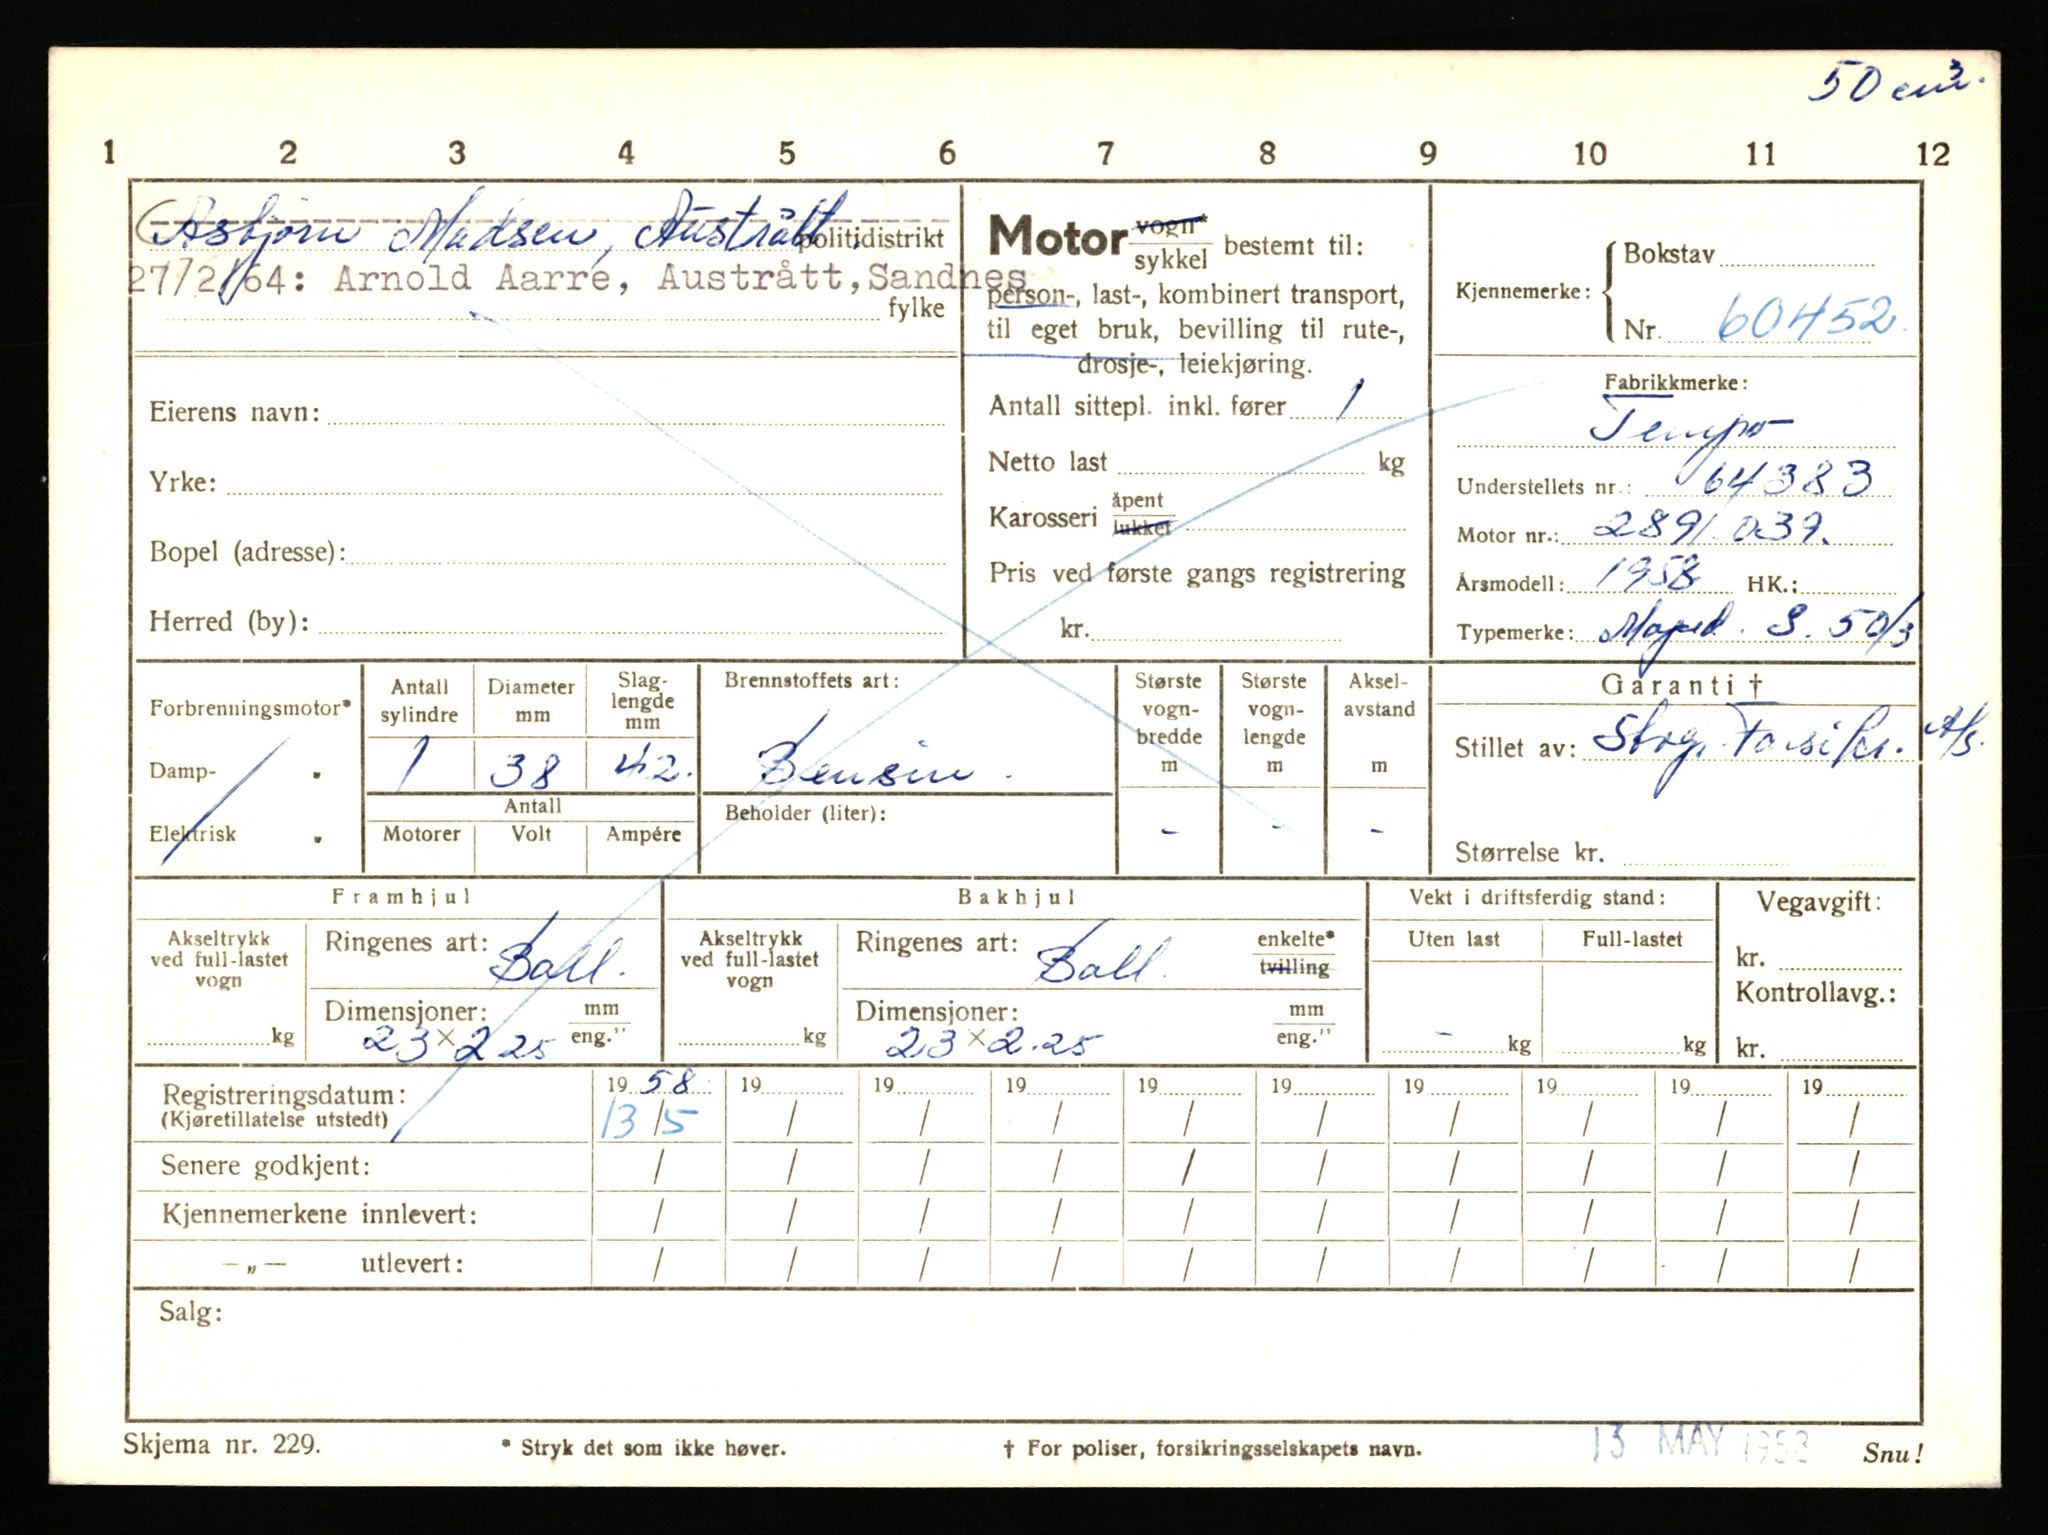 50 cm³.
1 2 3 4 5 6 7 8 9 10 11 12
(Asbjørn Madsen, Austrått. politidistrikt
27/2/64: Arnold Aarre, Austrått, Sandnes
fylke
Eierens navn:
Yrke:
Bopel (adresse):
Herred (by):
Motor vogn* sykkel bestemt til:
person-, last-, kombinert transport,
til eget bruk, bevilling til rute-,
drosje-, leiekjøring.
Antall sittepl. inkl. fører 1
Netto last kg
Karosseri åpent lukket
Pris ved første gangs registrering
kr.
Kjennemerke: Bokstav
Nr. 60452.
Fabrikkmerke:
Tempo
Understellets nr.: 64383
Motor nr.: 2891.039.
Årsmodell: 1958 HK.:
Typemerke: Moped. S. 50/3
Forbrenningsmotor*
Damp- "
Elektrisk "
Antall sylindre
1
Diameter mm
38
Slaglengde mm
42.
Antall
Motorer Volt Ampére
Brennstoffets art:
Bensin.
Beholder (liter):
Største vognbredde m
-
Største vognlengde m
-
Akselavstand m
-
Garanti †
Stillet av: Forsikr. A/S.
Størrelse kr.
Framhjul
Akseltrykk ved full-lastet vogn
kg
Ringenes art: Ball.
Dimensjoner: mm eng."
23 × 2.25
Bakhjul
Akseltrykk ved full-lastet vogn
kg
Ringenes art: Ball. enkelte* tvilling
Dimensjoner: mm eng."
23 × 2.25
Vekt i driftsferdig stand:
Uten last Full-lastet
- kg kg
Vegavgift:
kr.
Kontrollavg.:
kr.
Registreringsdatum: 19 58 19 19 19 19 19 19 19 19 19
(Kjøretillatelse utstedt) 13/5 / / / / / / / / /
Senere godkjent: / / / / / / / / / /
Kjennemerkene innlevert: / / / / / / / / / /
—„— utlevert: / / / / / / / / / /
Salg:
Skjema nr. 229.
* Stryk det som ikke høver.
† For poliser, forsikringsselskapets navn.
13 MAY 1958
Snu!